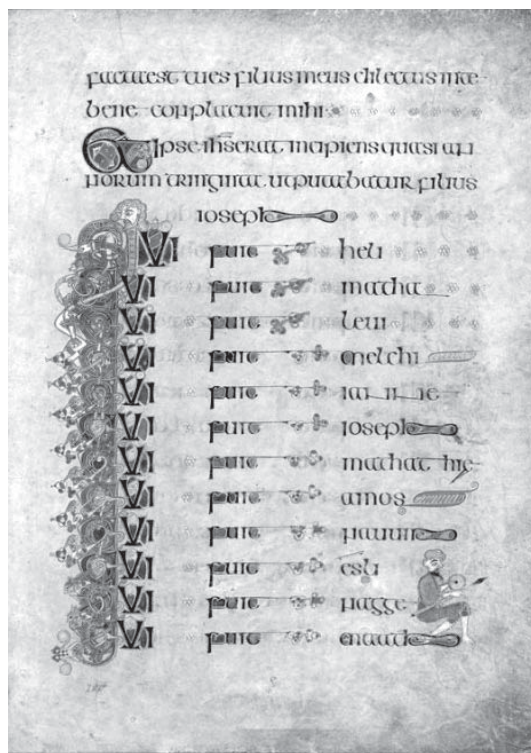 facta est tu es filius meus dilectus in te
bene conplacuit mihi
Et ipse ihs erat incipiens quasi an
norum triginta ut putabatur filius
ioseph
QVI fuit heli
QVI fuit matha
QVI fuit leui
QVI fuit melchi
QVI fuit iamne
QVI fuit ioseph
QVI fuit mathathie
QVI fuit amos
QVI fuit nauum
QVI fuit esli
QVI fuit nagge
QVI fuit maath